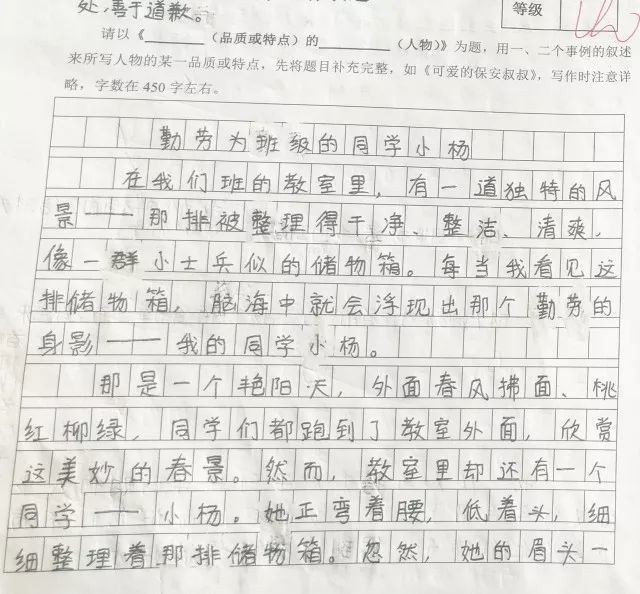 处，善于道歉。
等级
请以《______（品质或特点）的______（人物）》为题，用一、二个事例的叙述
来所写人物的某一品质或特点，先将题目补充完整，如《可爱的保安叔叔》，写作时注意详
略，字数在 450 字左右。
勤劳为班级的同学小杨
在我们班的教室里，有一道独特的风
景——那排被整理得干净、整洁、清爽，
像一群小士兵似的储物箱。每当我看见这
排储物箱，脑海中就会浮现出那个勤劳的
身影——我的同学小杨。
那是一个艳阳天，外面春风拂面、桃
红柳绿，同学们都跑到了教室外面，欣赏
这美妙的春景。然而，教室里却还有一个
同学——小杨。她正弯着腰，低着头，细
细整理着那排储物箱。忽然，她的眉头一